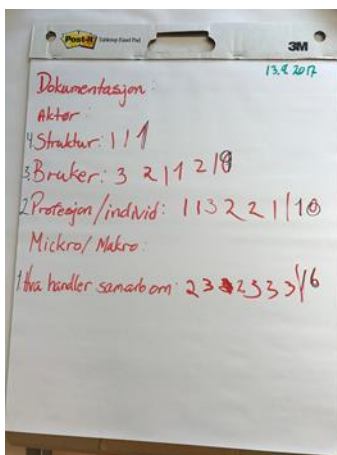 Post-it
3M
13.9.2017
Dokumentasjon:
Aktør:
4. Struktur: 1 1 1
3. Bruker: 3 2 1 1 2 / 9
2. Profesjon/individ: 1 1 3 2 2 1 / 10
Mickro/Makro:
1. Hva handler samarb om: 2 3 2 3 3 3 / 16